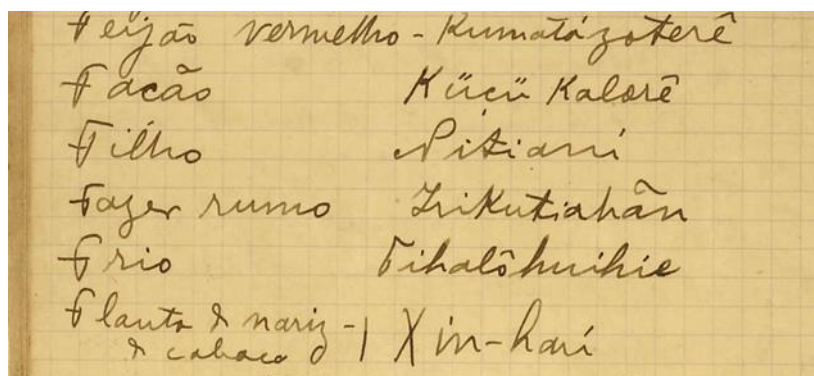 Feijão vermelho - Kumatázoterê
Facão Küçü Kalorê
Filho Nitiani
Fazer rumo Irikutiahãn
Frio Tihalôhuihie
Flauta de nariz - | Xin-hari
de cabaça